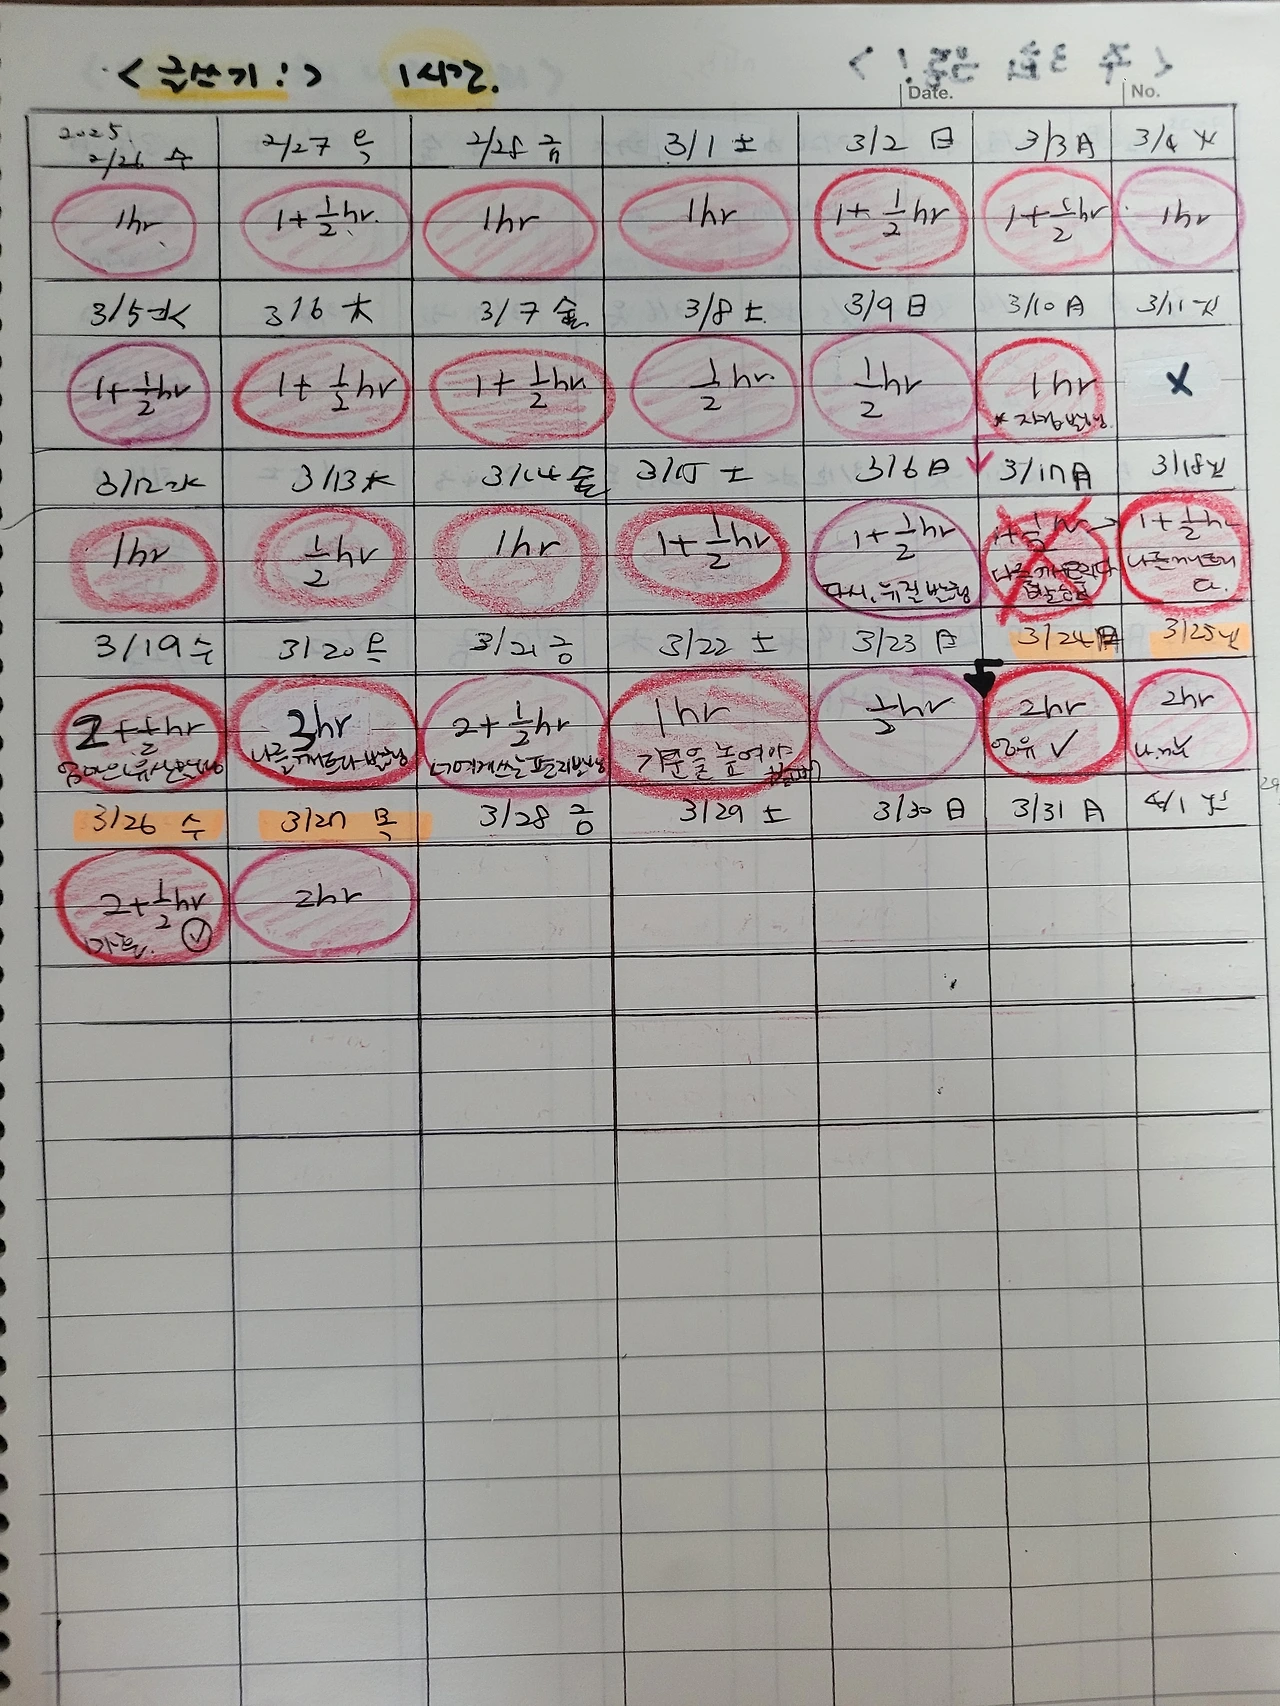 <글쓰기!> 1시간.
Date. No.
2025.
2/26 수 2/27 목 2/28 금 3/1 土 3/2 日 3/3 月 3/4 火
1hr 1+½hr. 1hr 1hr 1+½hr 1+½hr 1hr
3/5 水 3/6 木 3/7 金 3/8 土 3/9 日 3/10 月 3/11 火
1+½hr 1+½hr 1+½hr ½hr ½hr 1hr x
3/12 水 3/13 木 3/14 金 3/15 土 3/16 日 3/17 月 3/18 火
1hr ½hr 1hr 1+½hr 1+½hr 1+½hr → 1+½hr
다시,
3/19 수 3/20 목 3/21 금 3/22 土 3/23 日 3/24 月 3/25 火
2+½hr 3hr 2+½hr 1hr ½hr 2hr 2hr
기분을 높여야
3/26 수 3/27 목 3/28 금 3/29 土 3/30 日 3/31 月 4/1 火
2+½hr 2hr